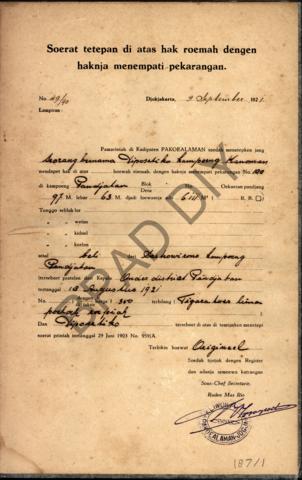 Soerat tetepan di atas hak roemah dengen
haknja menempati pekarangan.
No. 49/40 Djokjakarta, 9 September 1921.
Lampiran:
Pamarintah di Kadipaten PAKOEALAMAN soedah menetepken jang
seorang bernama Diposetiko kampoeng Kanoman
mendapet hak di atas hak roemah, dengen haknja menempati pekarangan No. 100
di kampoeng Pandjatan Blok Desa No. Oekoeran pandjang
97 M. lebar 63 M. djadi loewasnja ada 6111 M² ( R. R. □)
Tonggo sebblah lor
" " wetan
" " kidoel
" " koelon
asal beli dari Kertowirono kampoeng
Pandjatan
terseboet pratelan dari Kepala Onder district Pandjatan
tanggal 10 Augustus 1921
No. harga f 350 terbilang Tigaratoes lima
poeloeh roepiah
Dan Diposetiko terseboet di atas temtoe menetepi
soerat printah tertanggal 29 Juni 1903 No. 959/A.
Tertoelis boewat Origineel
Soedah tjotjok dengen Register
dan adanja semoewa katrangan
Sous-Chef Secretarie.
Raden Mas Rio
PAKOE ALAMAN
BPAD DIY
1871/1